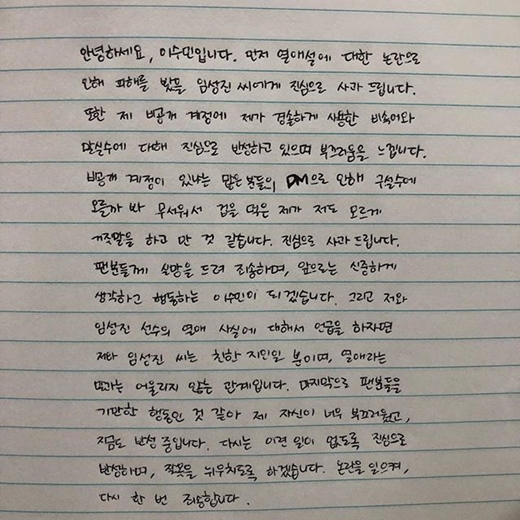 안녕하세요, 이수민입니다. 먼저 열애설에 대한 논란으로
인해 피해를 봤을 임성진 씨에게 진심으로 사과 드립니다.
또한 제 비공개 계정에 제가 경솔하게 사용한 비속어와
말실수에 대해 진심으로 반성하고 있으며 부끄러움을 느낍니다.
비공개 계정이 있냐는 많은 분들의 DM으로 인해 구설수에
오를까 봐 무서워서 겁을 먹은 제가 저도 모르게
거짓말을 하고 만 것 같습니다. 진심으로 사과 드립니다.
팬분들께 실망을 드려 죄송하며, 앞으로는 신중하게
생각하고 행동하는 이수민이 되겠습니다. 그리고 저와
임성진 선수의 열애 사실에 대해서 언급을 하자면
저와 임성진 씨는 친한 지인일 뿐이며, 열애라는
말과는 어울리지 않는 관계입니다. 마지막으로 팬분들을
기만한 행동인 것 같아 제 자신이 너무 부끄러웠고,
지금도 반성 중입니다. 다시는 이런 일이 없도록 진심으로
반성하며, 잘못을 뉘우치도록 하겠습니다. 논란을 일으켜,
다시 한 번 죄송합니다.